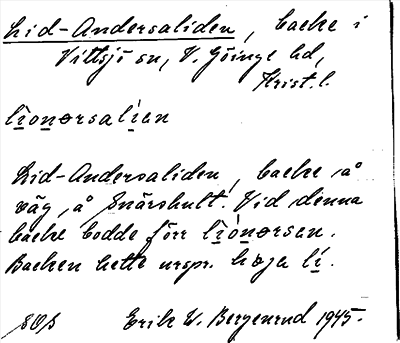 Lid-Andersaliden, backe i
Vittsjö sn, V. Göinge hd,
Krist.l.
lìonærsalían
Lid-Andersaliden, backe å
väg, å Snärshult. Vid denna
backe bodde förr lìónærsan.
Backen hette urspr. hæja lí.
Erik W. Bergenrud 1945.